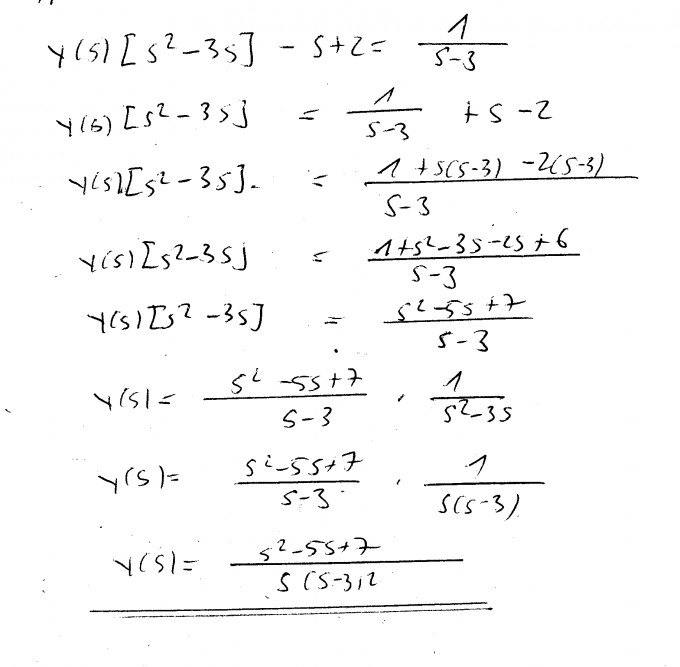 Y(s) [s²-3s] - s+2 = 1/(s-3)
Y(s) [s²-3s] = 1/(s-3) + s -2
Y(s) [s²-3s]. = (1 + s(s-3) -2(s-3))/(s-3)
Y(s) [s²-3s] = (1+s²-3s-2s+6)/(s-3)
Y(s) [s²-3s] = (s²-5s+7)/(s-3)
Y(s) = (s²-5s+7)/(s-3) · 1/(s²-3s)
Y(s) = (s²-5s+7)/(s-3) · 1/(s(s-3))
Y(s) = (s²-5s+7)/(s(s-3)²)